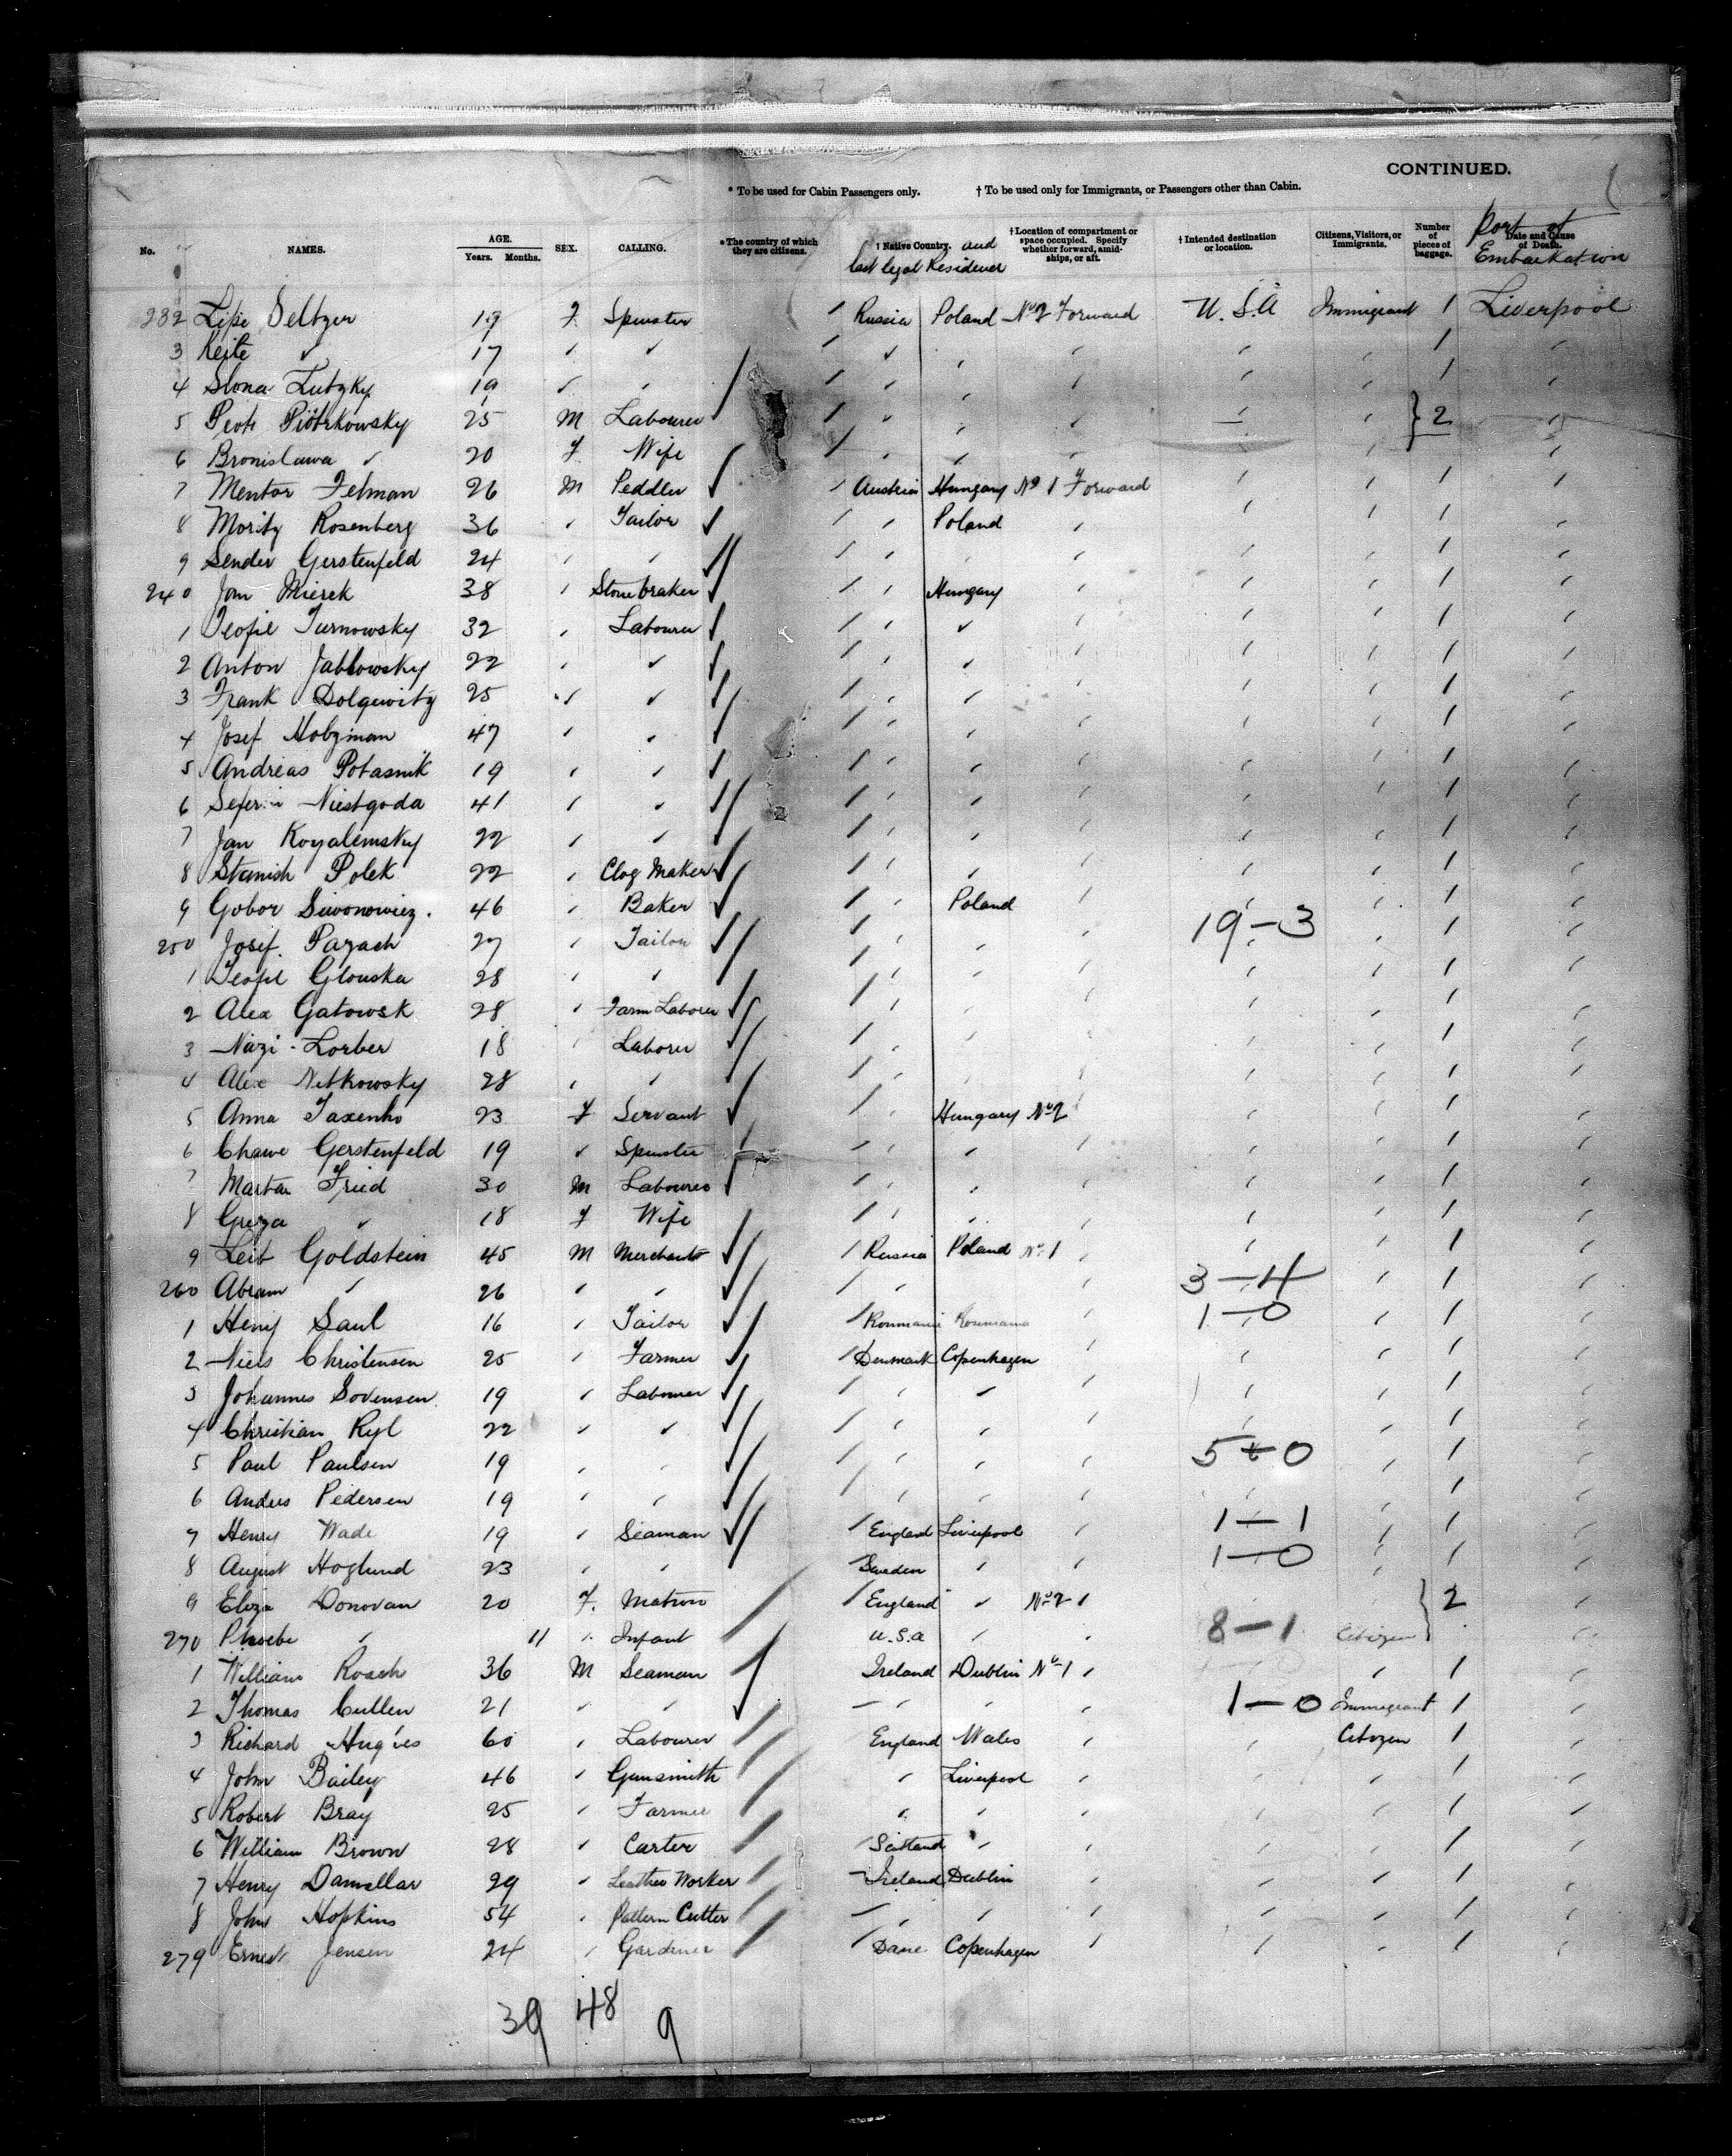 CONTINUED.
* To be used for Cabin Passengers only. † To be used only for Immigrants, or Passengers other than Cabin.
No. NAMES. AGE. Years. Months. SEX. CALLING. * The country of which they are citizens. † Native Country. and last legal Residence † Location of compartment or space occupied. Specify whether forward, amidships, or aft. † Intended destination or location. Citizens, Visitors, or Immigrants. Number of pieces of baggage. Date and Cause of Death. Port of Embarkation
232 Lipe Seltzer 19 F Spinster / Russia Poland No 2 Forward U.S.A Immigrant 1 Liverpool
3 Keile " 17 " " / " " " " " 1 "
4 Slona Lutzky 19 " " / " " " " " 1 "
5 Piotr Piotrkowsky 25 M Labourer / " " " " " } 2 "
6 Bronislawa " 20 F Wife / " " " " " "
7 Mentor Felman 26 M Peddler / Austria Hungary No 1 Forward " " 1 "
8 Moritz Rosenberg 36 " Tailor / " Poland " " " 1 "
9 Sender Gerstenfeld 24 " " / " " " " " 1 "
240 Jan Mierek 38 " Stonebraker / " Hungary " " " 1 "
1 Teofil Turnowsky 32 " Labourer / " " " " " 1 "
2 Anton Jablowsky 22 " " / " " " " " 1 "
3 Frank Dolgewitz 25 " " / " " " " " 1 "
4 Josef Hobzman 47 " " / " " " " " 1 "
5 Andreas Potasnik 19 " " / " " " " " 1 "
6 Niestgoda 41 " " / " " " " " 1 "
7 Jan Koyalemsky 22 " " / " " " " " 1 "
8 Stanish Polek 22 " Clog Maker / " " " " " 1 "
9 Gobor 46 " Baker / " Poland " " " 1 "
19 – 3
250 Josif Pazach 27 " Tailor / " " " " " 1 "
1 Teofil Glouska 28 " " / " " " " " 1 "
2 Alex Gatowsk 28 " Farm Laborer / " " " " " 1 "
3 Nazi Lorber 18 " Laborer / " " " " " 1 "
4 Alex Nitkowsky 28 " " / " " " " " 1 "
5 Anna Taxenho 23 F Servant / " Hungary No 2 " " 1 "
6 Chawe Gerstenfeld 19 " Spinster / " " " " " 1 "
7 Fried 30 M Labourer / " " " " " 1 "
8 " 18 F Wife / " " " " " 1 "
9 Leib Goldstein 45 M Merchant / Russia Poland No 1 " " 1 "
260 Abram " 26 " " / " " 3 – 4 " 1 "
1 Saul 16 " Tailor / Roumania Roumania " 1 – 0 " 1 "
2 Niels Christensen 25 " Farmer / Denmark Copenhagen " " 1 "
3 Johannes Sorensen 19 " Labourer / " " " " " 1 "
4 Christian Ryl 22 " " / " " " " " 1 "
5 Paul Paulsen 19 " " / " " " 5 – 0 " 1 "
6 Anders Pedersen 19 " " / " " " " " 1 "
7 Henry Wade 19 " Seaman / England Liverpool " 1 – 1 " 1 "
8 August Hoglund 23 " " / Sweden " " 1 – 0 " 1 "
9 Eliza Donovan 20 F. Matron / England " No 2 " } 2 "
270 Phoebe " 11 " Infant U.S.a " " 8 – 1 Citizen "
1 William Roach 36 M Seaman Ireland Dublin No 1 " " 1 "
2 Thomas Cullen 21 " " – " " " 1 – 0 Immigrant 1 "
3 Richard Hughes 60 " Labourer England Wales " " Citizen 1 "
4 John Bailey 46 " Gunsmith " Liverpool " " " 1 "
5 Robert Bray 25 " Farmer " " " " " 1 "
6 William Brown 28 " Carter / Scotland " " " " 1 "
7 Henry 29 " Leather Worker – Ireland Dublin " " " 1 "
8 John Hopkins 54 " Pattern Cutter – " " " " " 1 "
279 Ernest Jensen 24 " Gardener / Dane Copenhagen " " " 1 "
39 48 9